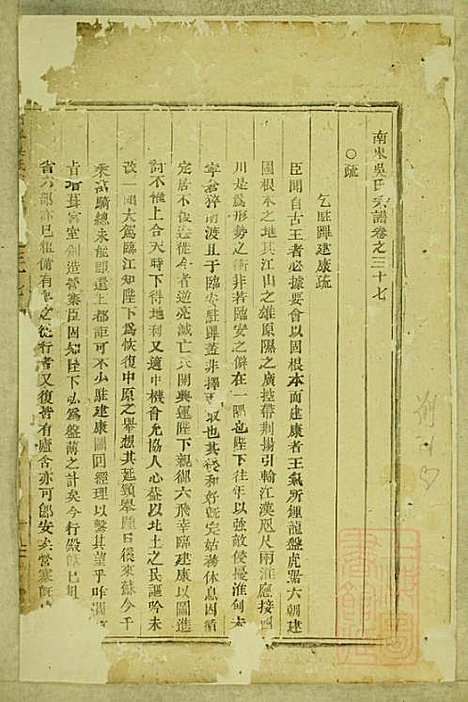 南豐吳氏宗譜卷之三十七
○疏
乞駐蹕建康疏
臣聞自古王者必據要會以固根本而建康者王氣所鍾龍盤虎踞六朝建
國根本之地其江山之雄原隰之廣控帶荆揚引輸江漢咫尺兩淮應接四
川是爲形勢之衝非若臨安之僻在一隅也陛下往年以強敵侵擾淮甸
南渡且于臨安駐蹕蓋非擇取也和好旣定姑務休息因循
定居不復北還今者逆亮滅亡開興運陛下親御六飛幸臨建康以圖進
取不惟上合天時下得地利又適中機會允協人心益以北土之民謳吟未
改一聞大駕臨江知陛下爲恢復中原之舉想其延頸舉踵日徯來蘇今千
乘萬騎縱未能卽還上都詎可不少駐建康圖回經理以繫其望乎昨
嘗葺宮室創造營寨臣固知陛下弘爲盤薄之計矣今行殿旣已
省六部亦已粗備有之從行者又復皆有廬舍亦可卽安矣營寨旣